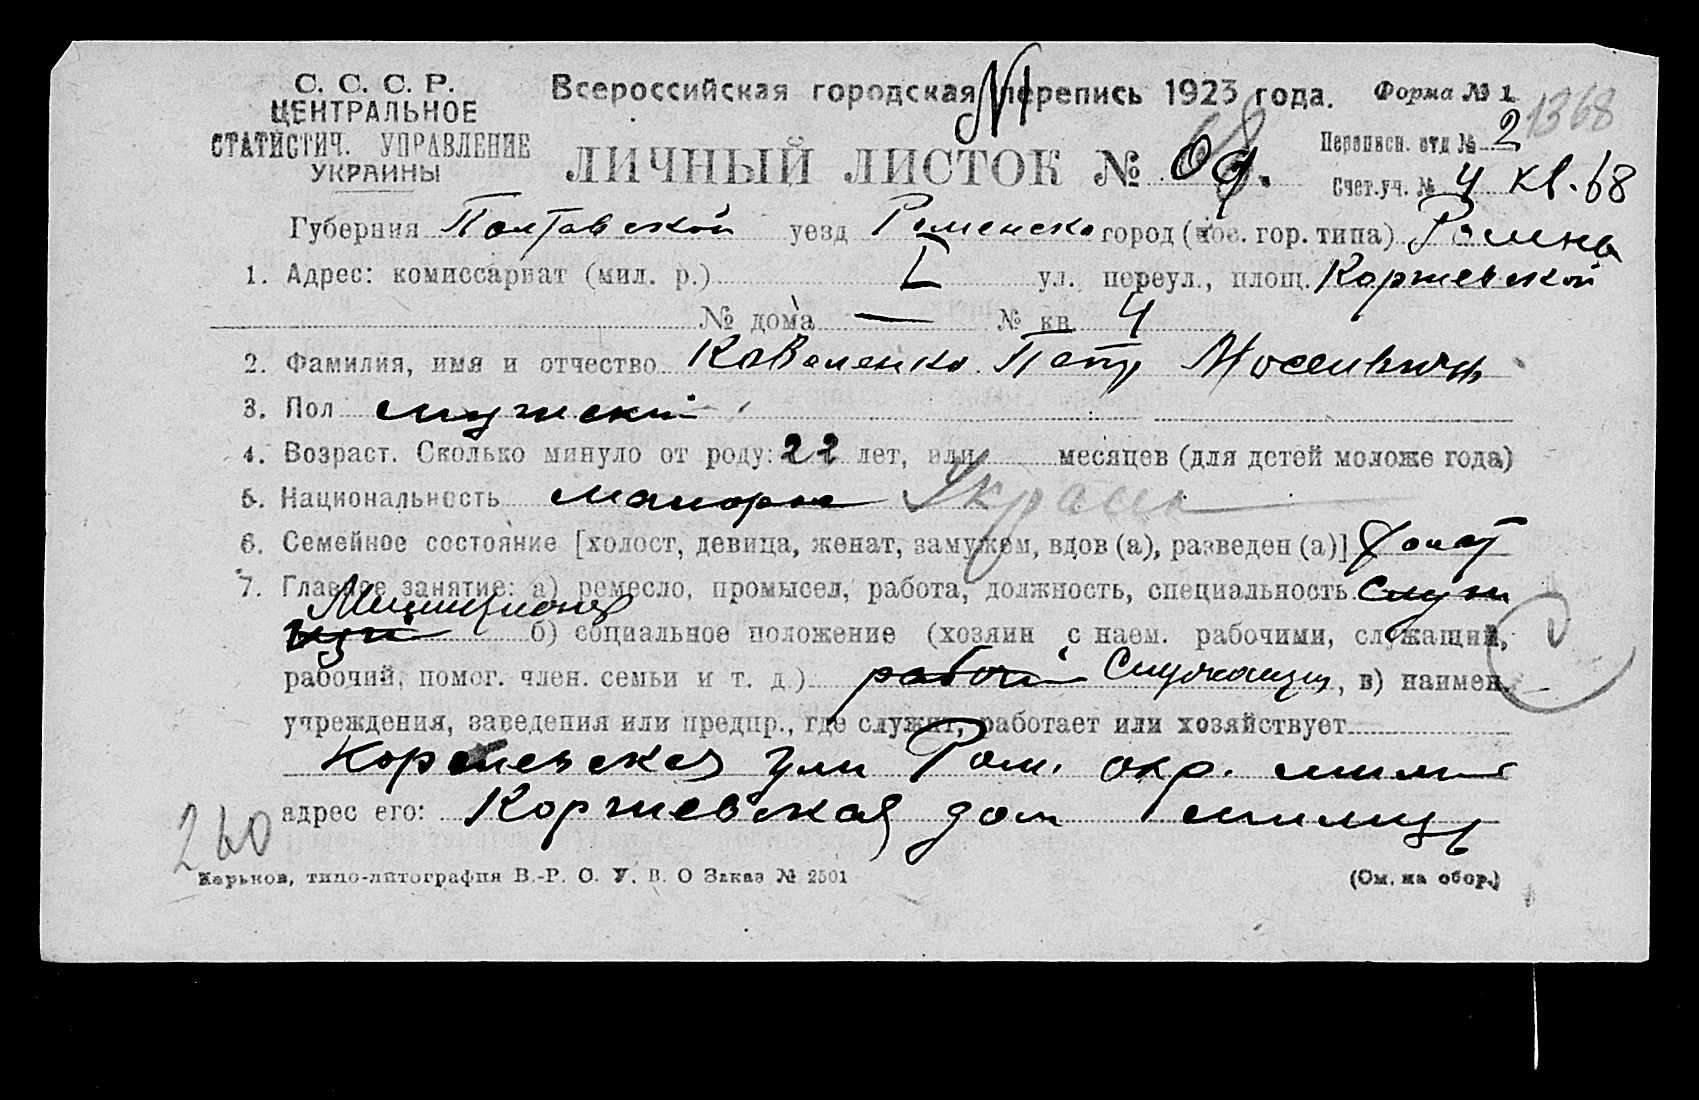 С. С. С. Р.
ЦЕНТРАЛЬНОЕ
СТАТИСТИЧ. УПРАВЛЕНИЕ
УКРАИНЫ
Всероссийская городская перепись 1923 года.
Форма № 1
1368
ЛИЧНЫЙ ЛИСТОК №
68
Переписн. отд № 2
Счет.уч. № 4 кв. 68
Губерния Полтавской уезд Роменско город (пос. гор. типа) Ромны
1. Адрес: комиссариат (мил. р.) I ул. переул., площ. Коржевской
№ дома — № кв 4
2. Фамилия, имя и отчество Коваленко Петр Моссивичь
3. Пол мужский
4. Возраст. Сколько минуло от роду: 22 лет, или месяцев (для детей моложе года)
5. Национальность малорос Украин
6. Семейное состояние [холост, девица, женат, замужем, вдов (а), разведен (а)] Холост
7. Главное занятие: а) ремесло, промысел, работа, должность, специальность Служ
Милиционер
б) социальное положение (хозяин с наем. рабочими, служащий,
рабочий, помог. член. семьи и т. д.) рабочий Служащий, в) наимен.
учреждения, заведения или предпр., где служит, работает или хозяйствует
Коржевская ули Ром. окр. мили
адрес его: Коржевская дом милиц
260
Харьков, типо-литография В.-Р. С. У. В. О Заказ № 2501
(См. на обор.)